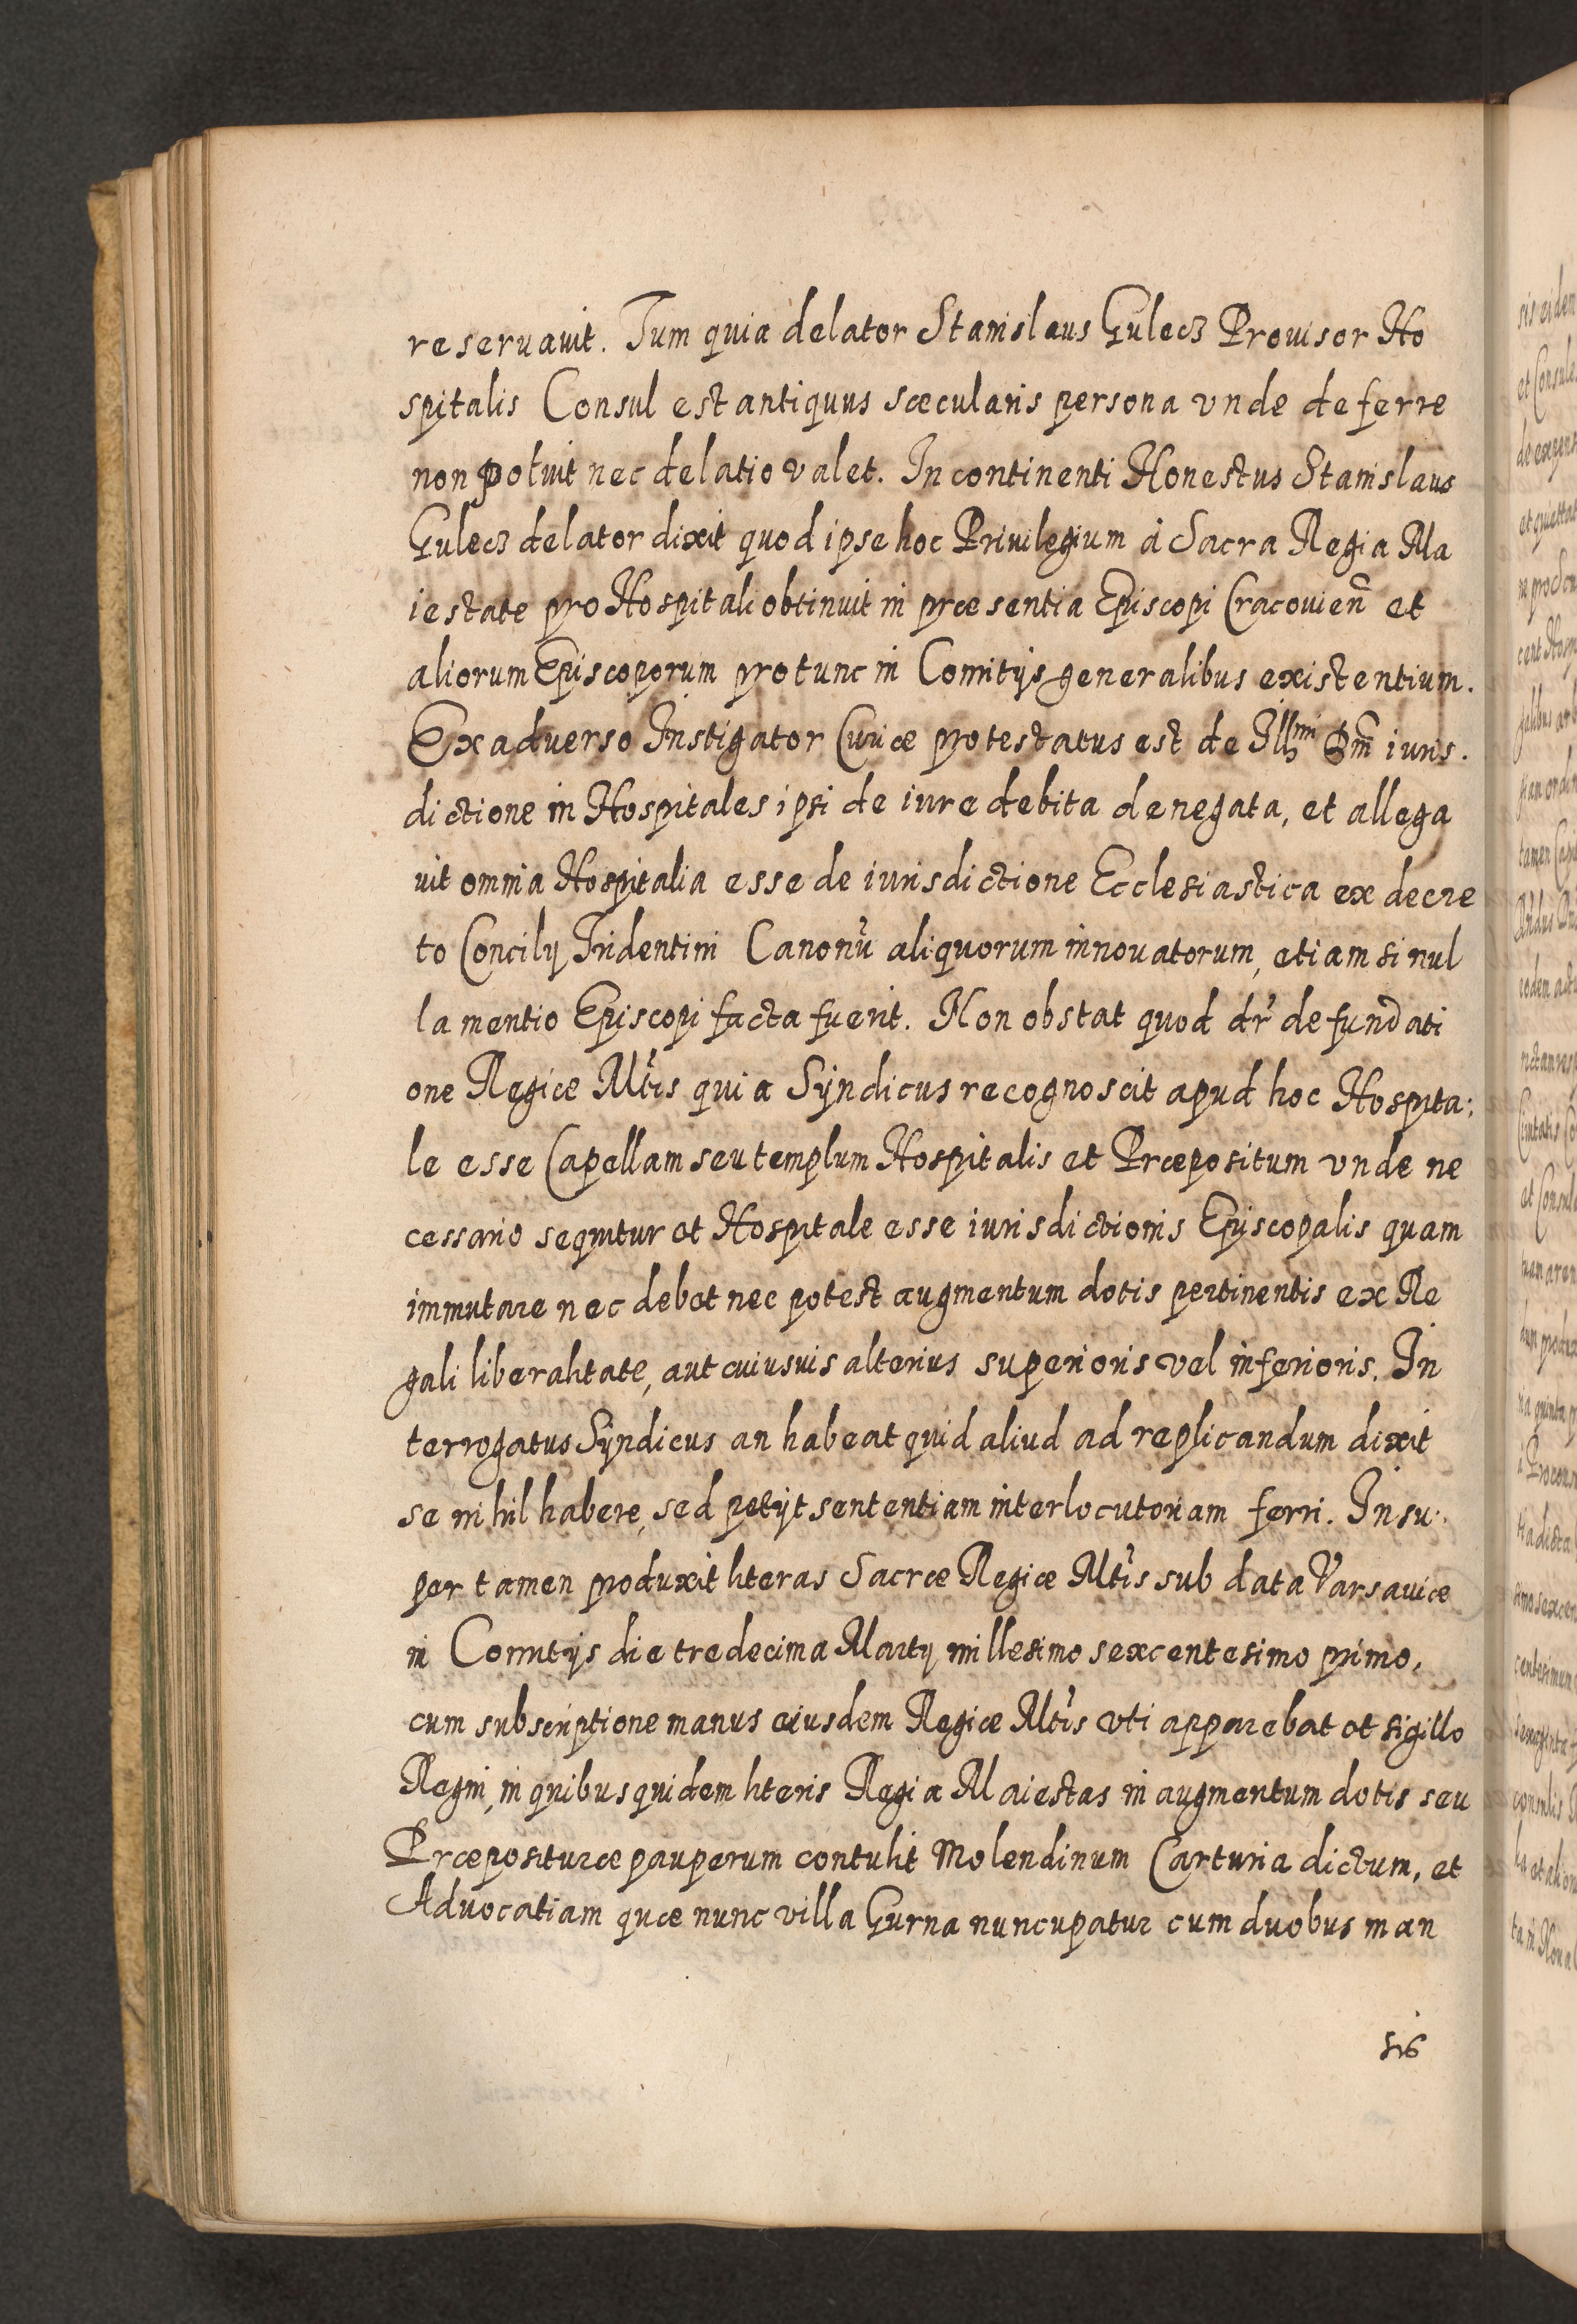 reseruauit. Tum quia delator Stanislaus Gulecz Prouisor Ho
spitalis Consul est antiquus sæcularis persona vnde deferre
non potuit nec delatio valet. In continenti Honestus Stanislaus
Gulecz delator dixit quod ipse hoc Priuilegium à Sacra Regia Ma
iestate pro Hospitali obtinuit in præsentia Episcopi Cracouien̄ et
aliorum Episcoporum pro tunc in Comitijs generalibus existentium.
Ex aduerso Instigator Curiæ protestatus est de Illmi Dn̄i iuris.
dictione in Hospitales ipsi de iure debita denegata, et allega
uit omnia Hospitalia esse de iurisdictione Ecclesiastica ex decre
to Concilij Tridentini Canonũ aliquorum innouatorum, etiam si nul
la mentio Episcopi facta fuerit. Non obstat quod dr̃ de fundati
one Regiæ Mtis quia Syndicus recognoscit apud hoc Hospita:
le esse Capellam seu templum Hospitalis et Præpositum vnde ne
cessario sequitur et Hospitale esse iurisdictionis Episcopalis quam
immutare nec debet nec potest augmentum dotis pertinentis ex Re
gali liberalitate, aut cuiusuis alterius superioris vel inferioris. In
terrogatus Syndicus an habeat quid aliud ad replicandum dixit
se nihil habere, sed petijt sententiam interlocutoriam ferri. Insu.
per tamen produxit literas Sacræ Regiæ Mtis sub data Varsauiæ
in Comitijs die tredecima Martij millesimo sexcentesimo primo,
cum subscriptione manus eiusdem Regiæ Mtis vti apparebat et sigillo
Regni, in quibus quidem literis Regia Maiestas in augmentum dotis seu
Præposituræ pauperum contulit Molendinum Carturia dictum, et
Aduocatiam quæ nunc villa Gurna nuncupatur cum duobus man
sis